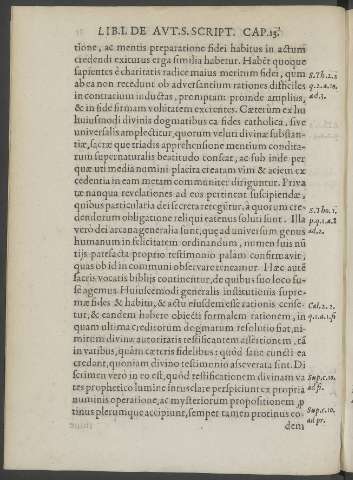 LIB. I. DE AVT. S. SCRIPT. CAP. 15.
tione, ac mentis preparatione fidei habitus in actum
credendi exiturus erga similia habetur. Habēt quoque
sapientes è charitatis radice maius meritum fidei, qum
ab ea non recedunt ob adversantium rationes difficiles
in contrarium inductas, promptam proinde amplius,
& in fide firmam volūtatem exercentes. Cæterūm ex hu
huiusmodi divinis dogmatibus ea fides catholica, sive
universalis amplectitur, quorum veluti divinæ substan-
tiæ, sacræque triadis apprehensione mentium condita-
rum supernaturalis beatitudo constat, ac sub inde per
quæ uti media numini placita creatam vim & aciem ex
cedentia in eam metam communiter diriguntur. Priva
tæ nanqua revelationes ad eos pertinent suscipiendæ,
quibus particularia dei secreta reteguntur, à quorum cre-
dendorum obligatione reliqui eatenus soluti sunt. Illa
verò dei arcana generalia sunt, quæ ad universum genus
humanum in felicitatem ordinandum, numen suis nū
tijs patefacta proprio testimonio palam confirmavit,
quas ob id in communi observare tenemur. Hæc autē
sacris vocatis biblijs continentur, de quibus suo loco fu-
sè agemus. Huiuscemodi generalis institutionis supre-
mæ fides & habitu, & actu eiusdem esse rationis cense-
tur, & eandem habere obiecti formalem rationem, in
quam ultima creditorum dogmatum resolutio fiat, ni-
mirum divinæ autoritatis testificantem assertionem, tā
in vatibus, quàm cæteris fidelibus: quòd sanè cuncti ea
credant, quoniam divino testimonio asseverata sint. Di
scrimen verò in eo est, quòd testificationem divinam va
tes prophetico lumine intus clare perspiciunt ex propria
numinis operatione, ac mysteriorum propositionem p
tinus plerumque accipiunt, semper tamen protinus eo-
dem
S. Th. 2. 2
q. 2. a. 10.
ad. 3.
S. Tho. 1.
p. q. 1. a. 8
ad. 2.
Cal. 2. 2.
q. 1. a. 1. fi
Sup. c. 10.
ad fi.
Sup. c. 10.
ad pr.